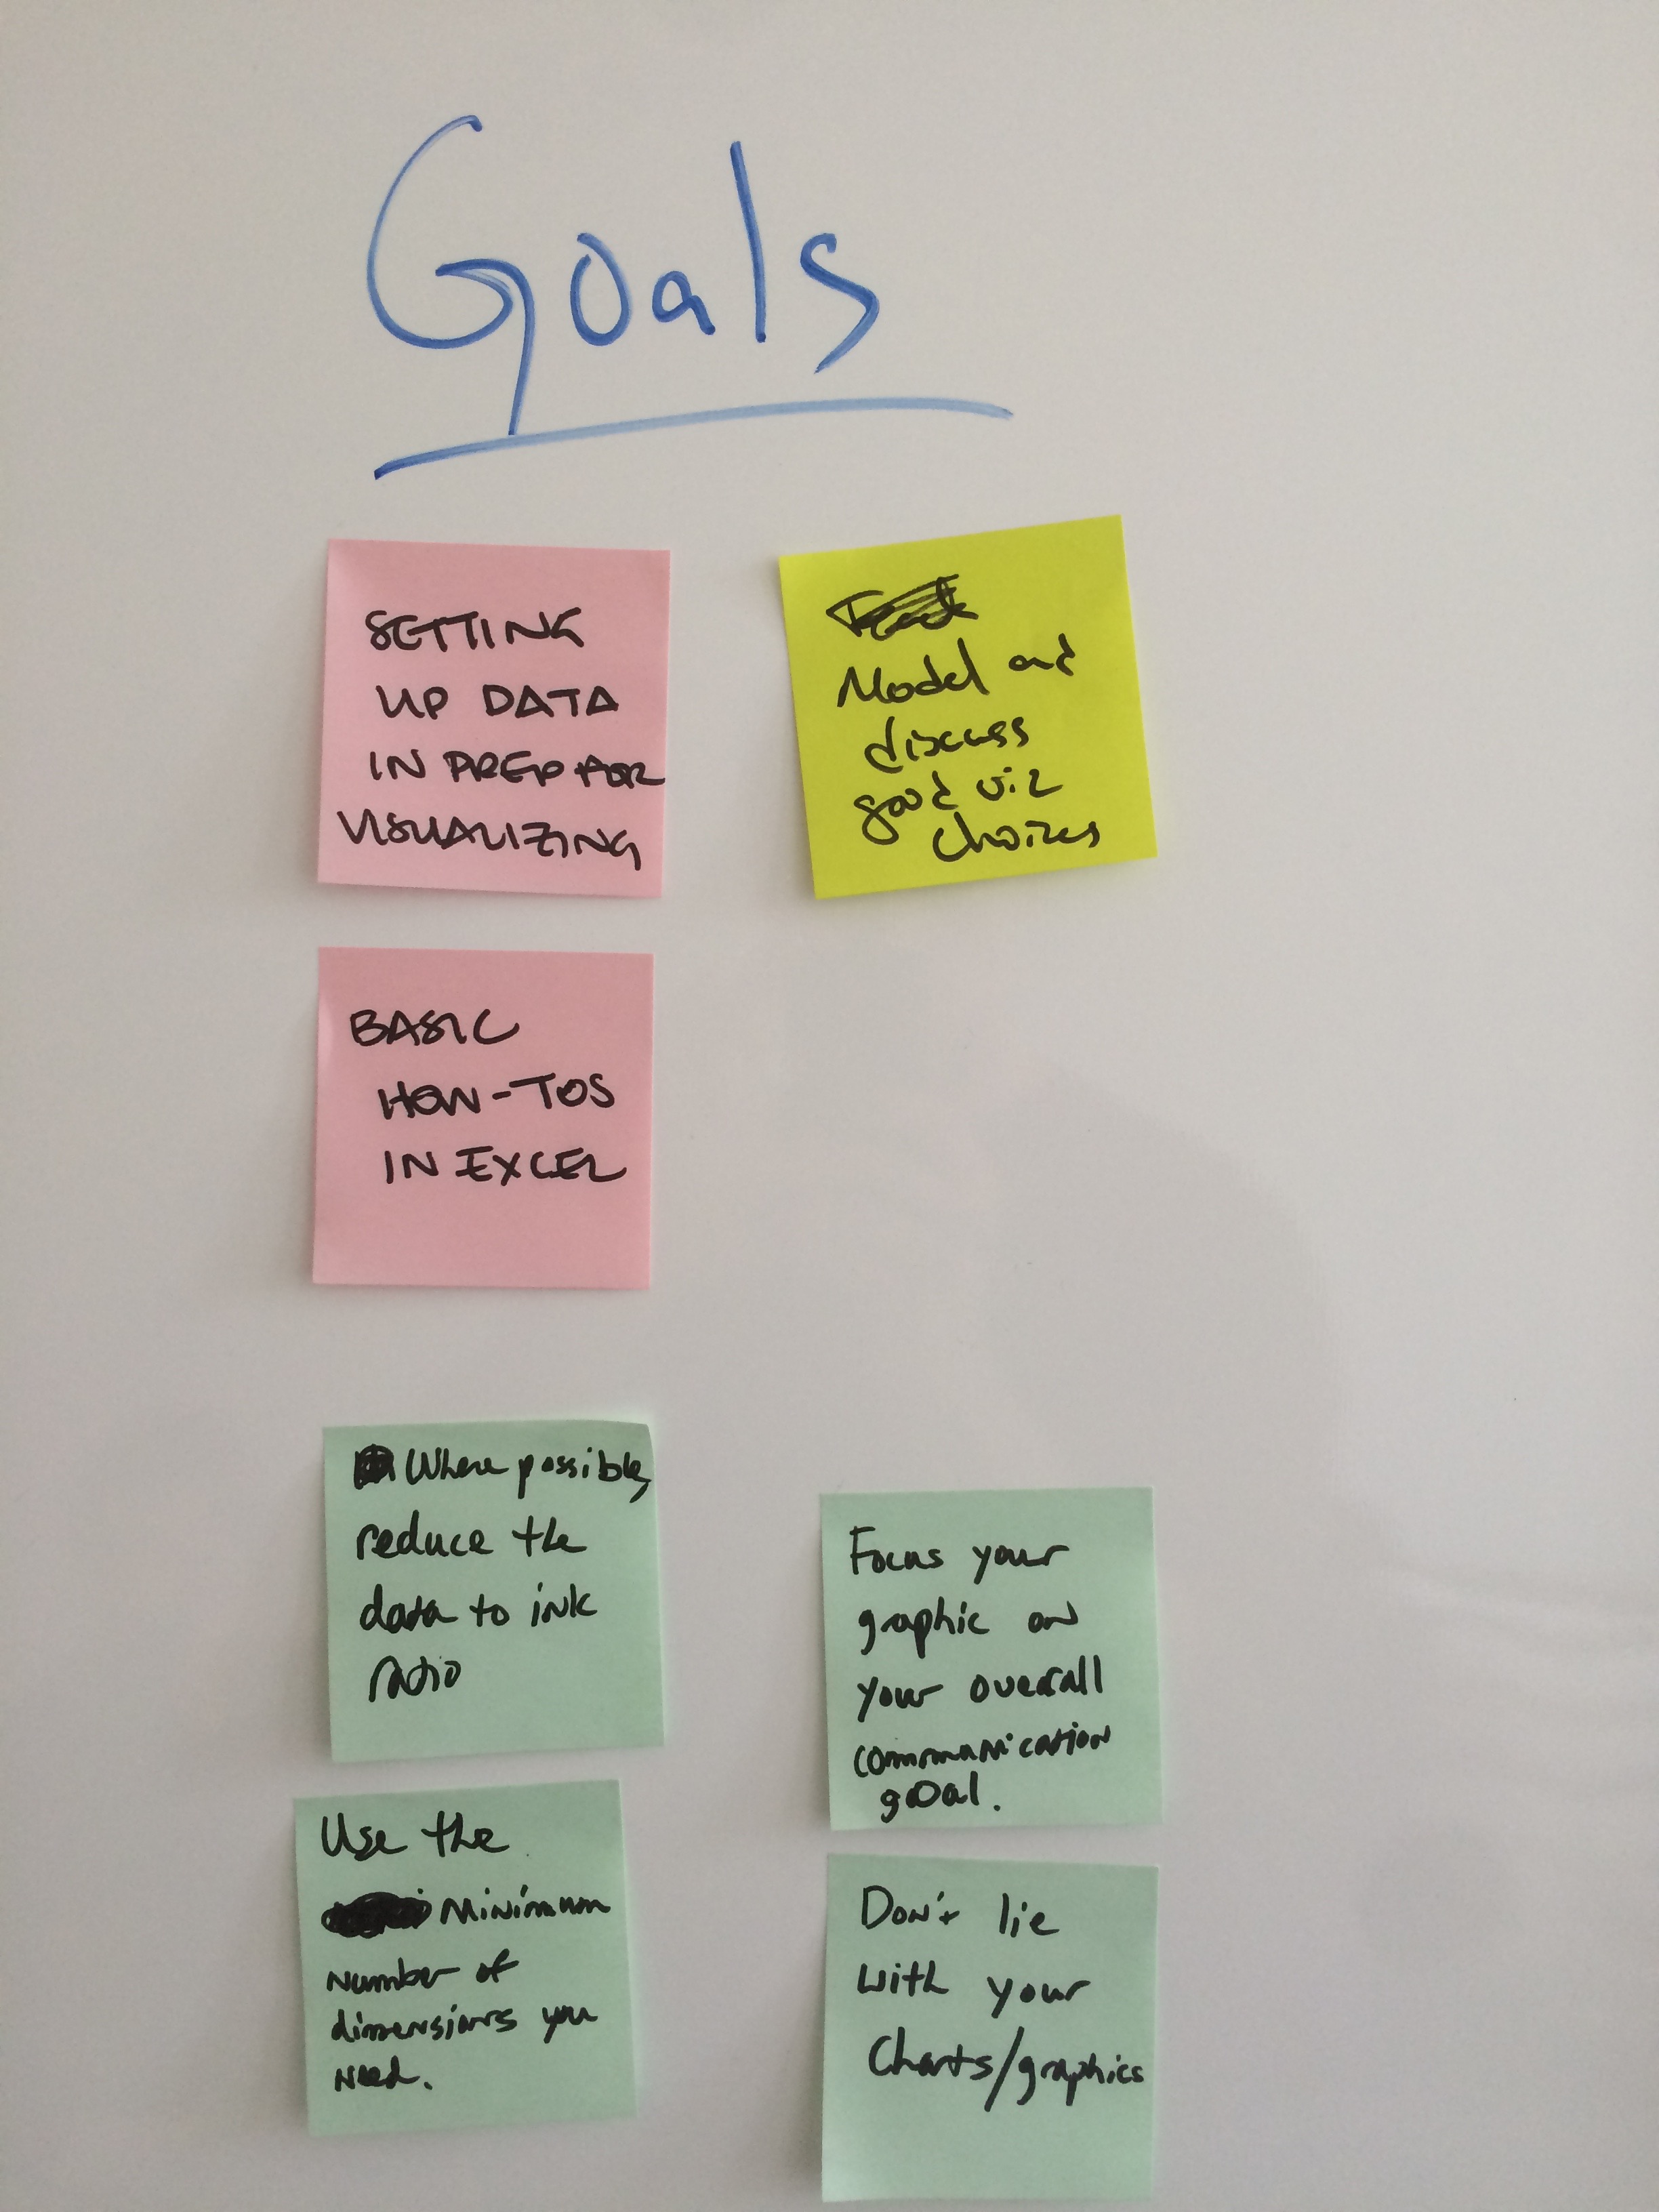 Goals
SETTING
UP DATA
IN PREP FOR
VISUALIZING
Model and
discuss
good viz
choices
BASIC
HOW-TOS
IN EXCEL
Where possible,
reduce the
data to ink
ratio
Focus your
graphic on
your overall
communication
goal.
Use the
Minimum
number of
dimensions you
need.
Don't lie
with your
Charts/graphics